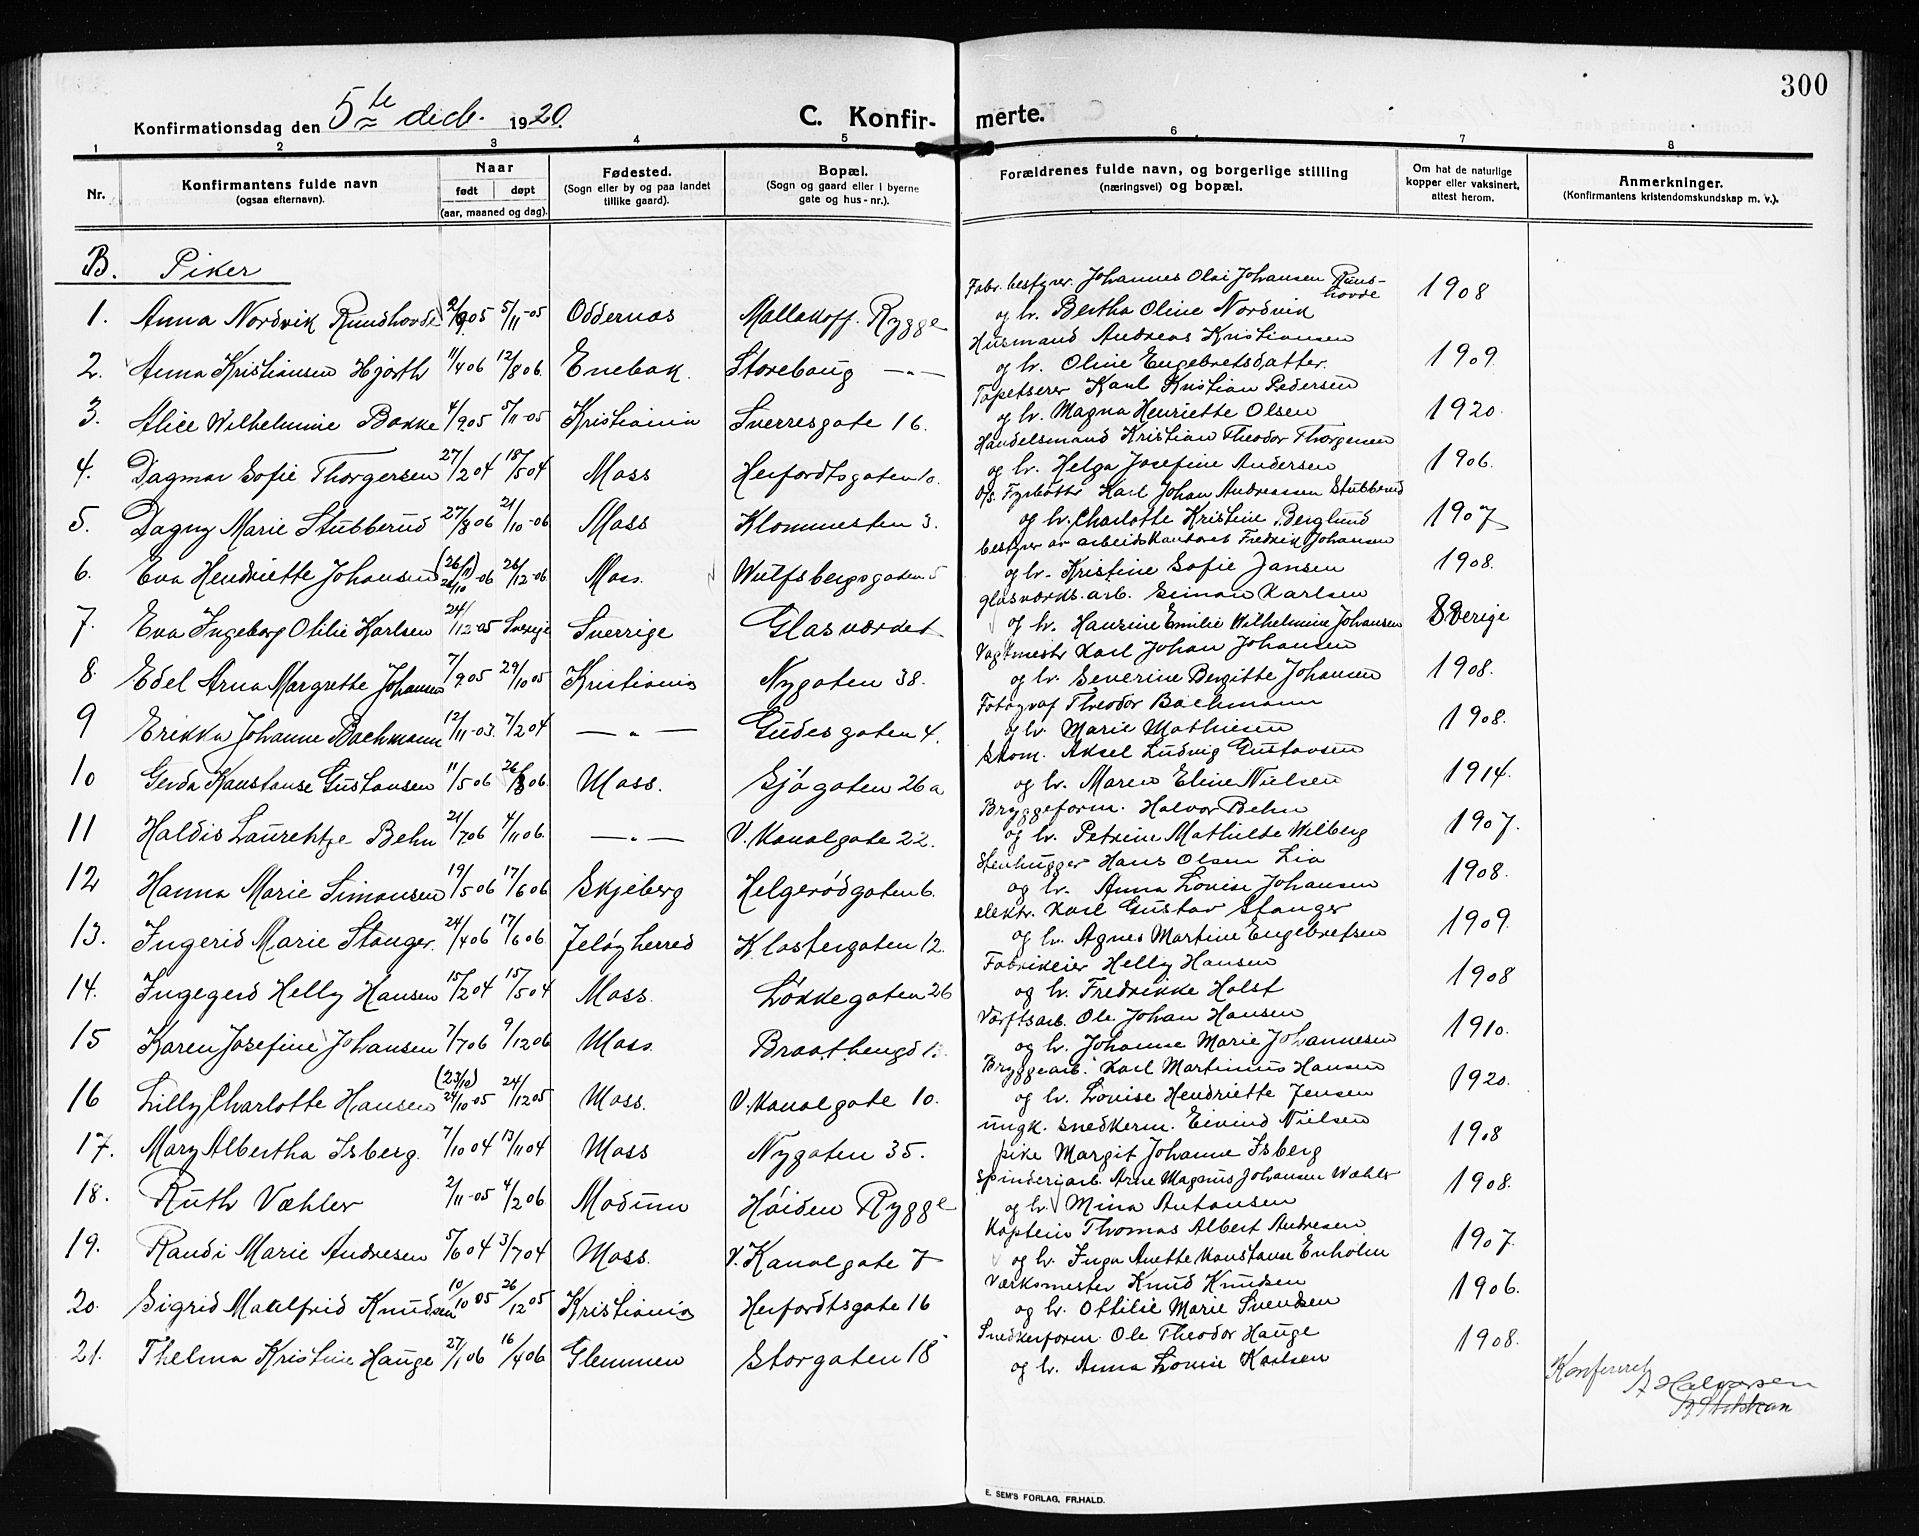 300
Konfirmationsdag den 5te decb. 1920.
C. Konfirmerte.
1 2 3 4 5 6 7 8
Nr.
Konfirmantens fulde navn
(ogsaa efternavn).
Naar
født døpt
(aar, maaned og dag).
Fødested.
(Sogn eller by og paa landet
tillike gaard).
Bopæl.
(Sogn og gaard eller i byerne
gate og hus-nr.).
Forældrenes fulde navn, og borgerlige stilling
(næringsvei) og bopæl.
Om hat de naturlige
kopper eller vaksinert,
attest herom.
Anmerkninger.
(Konfirmantens kristendomskundskap m. v.).
B. Piker
Fabr. bestyrer Johannes Olai Johansen Rundshovde
1. Anna Nordvik Rundhovde 2/9 05 5/11-05 Oddernes Mallakoff. Rygge og h. Bertha Oline Nordvik 1908
Husmand Andreas Kristiansen
2. Anna Kristiansen Hjorth 11/4 06 12/8 06. Enebak. Storebaug -"- og h. Oline Engebretsdatter. 1909.
Tapetserer Karl Kristian Pedersen
3. Alice Wilhelmine Bakke 4/9 05 5/11-05 Kristiania Sverresgate 16. og h. Magna Henriette Olsen 1920.
Handelsmand Kristian Theodor Thorgersen
4. Dagmar Sofie Thorgersen 27/2 04 15/5 04 Moss Herfordtsgaten 10. og h. Helga Josefine Andersen 1906.
D/s. Fyrbøter Karl Johan Andreassen Stubberud
5. Dagny Marie Stubberud 27/8 06 21/10-06 Moss Klommesten 3. og h. Charlotte Kristine Berglund 1907
bestyrer av arbeidskontoret Fredrik Johansen
6. Eva Hendriette Johansen (26/9) 26/10-06 26/12-06 Moss. Wulfsbergsgaten 5 og h. Kristine Sofie Jansen 1908.
glasværks. arb. Simon Karlsen
7. Eva Ingeborg Otilie Karlsen 24/12-05 Sverige Sverrige Glasværket og h. Hansine Emilie Wilhelmine Johansen Sverige
Vagtmester Karl Johan Johansen
8. Edel Arna Margrethe Johansen 7/9 05 29/10 05 Kristiania Nygaten 38. og h. Severine Bergitte Johansen 1908.
Fotograf Theodor Bachmann
9 Erikka Johanne Bachmann 12/11-03. 7/2 04 -"- Gudes gaten 4. og h. Marie Mathiesen 1908.
Skom. Aksel Ludvig Gustavsen
10 Gerda Konstanse Gustavsen 11/5 06 26/8 06. Moss. Sjøgaten 26a og h. Maren Eline Nielsen 1914.
Bryggeform. Halvor Behn
11 Haldis Laurentze Behn 21/7 06 4/11 06. -"- V. Kanalgate 22. og h. Petrine Mathilde Wilberg 1907.
Stenhugger Hans Olsen Lia
12 Hanna Marie Simonsen 19/5 06 17/6 06 Skjeberg Helgerødgaten 6. og h. Anna Lovise Johansen 1908.
elektr. Karl Gustav Stanger
13. Ingerid Marie Stanger. 24/4 06 17/6 06. Jeløy herred Klostergaten 12. og h. Agnes Martine Engebretsen 1909.
Fabrikeier Helly Hansen
14. Ingegerd Helly Hansen 15/2 04 15/5 04 Moss. Løkkegaten 26 og h. Fredrikke Holst 1908
Værftsarb. Ole Johan Hansen
15 Karen Josefine Johansen 7/7 06 9/12 06 Moss. Braathengd og h. Johanne Marie Johannesen 1910.
Bryggearb. Karl Martinius Hansen
16 Lilly Charlotte Hansen (23/10) 24/10-05 24/12 05 Moss. V. Kanalgate 10. og h. Lovise Hendriette Jensen 1920.
ungk. snedkerm. Eivind Nielsen
17. Mary Albertha Isberg. 7/10 04 13/11 04 Moss Nygaten 35. pike Margit Johanne Isberg 1908
Spinderiarb. Arne Magnus Johansen Wæhler
18. Ruth Væhler 2/11-05 4/2 06 Modum Høiden Rygge og h. Mina Antonsen 1908.
Kaptein Thomas Albert Andresen
19. Randi Marie Andresen 5/6 04 3/7 04 Moss. V. Kanalgate 7 og h. Inga Anette Konstanse Enholm 1907.
Værksmester Knud Knudsen
20. Sigrid Maalfrid Knudsen 10/10 05 26/12 05 Kristiania Herfordtsgate 16 og h. Ottilie Marie Svendsen 1906.
Snedkerform. Ole Theodor Hauge
21. Thelma Kristine Hauge 27/1 06 16/4 06 Glemmen Storgaten 18 og h. Anna Lovise Karlsen 1908.
Konfereret
A Halvorsen
E. SEM'S FORLAG, FR.HALD.